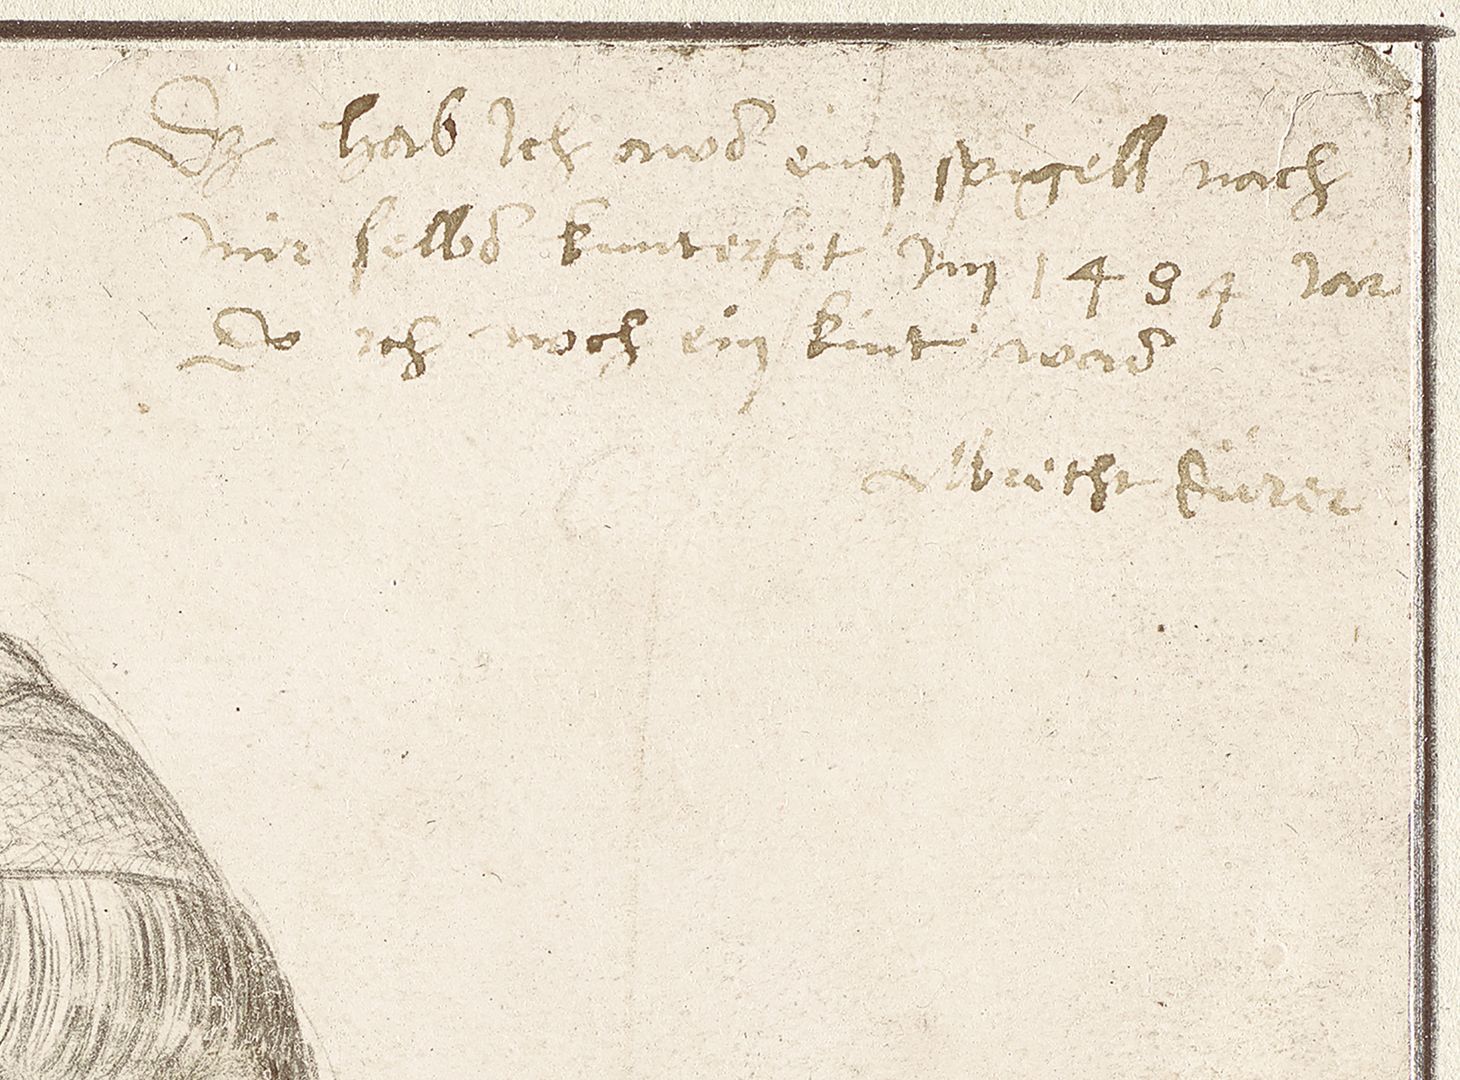 Dz hab Ich aws eim spigell nach
mir selbs kunterfet Im 1484 Jar
Do ich noch ein kint was
Albrecht Dürer